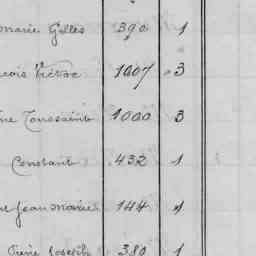 Marie Gilles 390 1
çois Victor 1007 3
ne Toussaint 1000 3
Constant 432 1
Jean Marie 144 1
Pierre Joseph 380 1